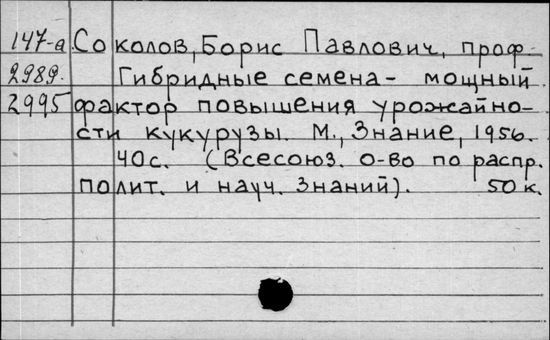 147-а Соколов, Борис Павлович, проф.
2989. Гибридные семена - мощный
2995 фактор повышения урожайно-
сти кукурузы. М., Знание, 1956.
40с. (Всесоюз. о-во по распр.
полит. и науч. знаний). 50 к.